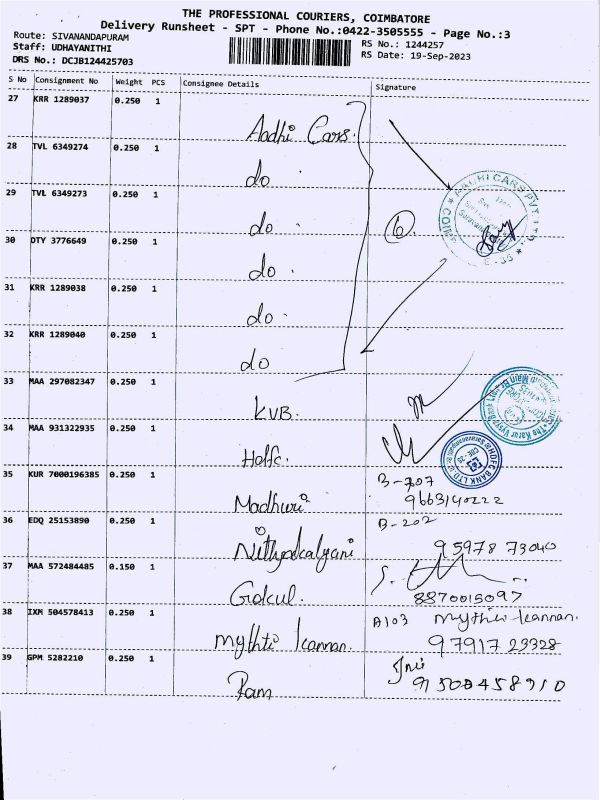 THE PROFESSIONAL COURIERS, COIMBATORE
Delivery Runsheet - SPT - Phone No.:0422-3505555 - Page No.:3
Route: SIVANANDAPURAM
RS No.: 1244257
Staff: UDHAYANITHI
RS Date: 19-Sep-2023
DRS No.: DCJB124425703
S No Consignment No Weight PCS Consignee Details Signature
27 KRR 1289037 0.250 1
Aadhi Cars.
28 TVL 6349274 0.250 1
do
29 TVL 6349273 0.250 1
do
6
30 DTY 3776649 0.250 1
do
31 KRR 1289038 0.250 1
do
32 KRR 1289040 0.250 1
do
33 MAA 297082347 0.250 1
KVB.
34 MAA 931322935 0.250 1
Hdfc.
35 KUR 7000196385 0.250 1
B-207
Madhuri 9663140222
36 EDQ 25153890 0.250 1
B-202
Nithyakalyani 95978 73040
37 MAA 572484485 0.150 1
Gokul. 8870015097
38 IXM 504578413 0.250 1
A103 mythti kannan.
mythti kannan. 97917 23328
39 GPM 5282210 0.250 1
Ram